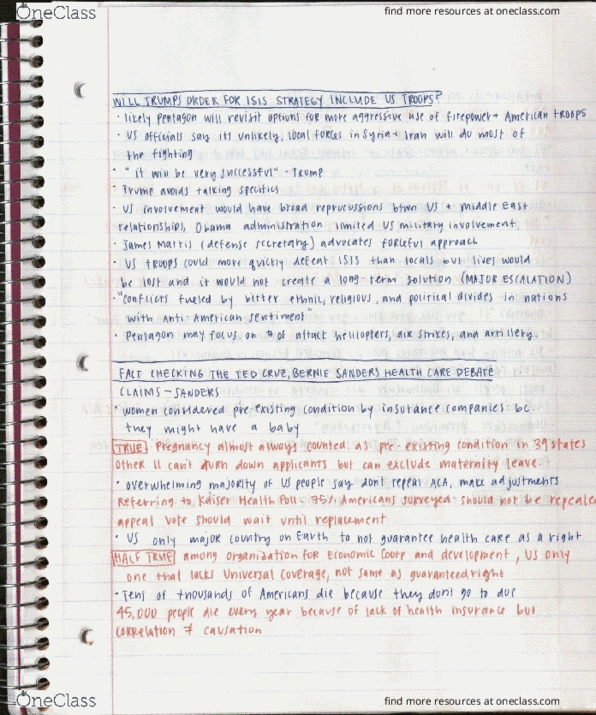 OneClass
find more resources at oneclass.com
WILL TRUMPS ORDER FOR ISIS STRATEGY INCLUDE US TROOPS?
· likely Pentagon will revisit options for more aggressive use of firepower + American troops
· US officials say its unlikely, local forces in Syria + Iran will do most of
the fighting
· "it will be very successful" - Trump
· Trump avoids talking specifics
· US involvement would have broad reprucussions btwn US + Middle East
relationships, Obama administration limited US military involvement
· James Mattis (defense secretary) advocates forceful approach
· US troops could more quickly defeat ISIS than locals but lives would
be lost and it would not create a long term solution (MAJOR ESCALATION)
· "conflicts fueled by bitter ethnic, religious, and political divides in nations
with Anti-American sentiment"
· Pentagon may focus on # of attack helicopters, air strikes, and artillery
FACT CHECKING THE TED CRUZ, BERNIE SANDERS HEALTH CARE DEBATE
CLAIMS - SANDERS
· women considered pre existing condition by insurance companies bc
they might have a baby
TRUE Pregnancy almost always counted as pre-existing condition in 39 states
Other 11 can't turn down applicants but can exclude maternity leave
· overwhelming majority of US people say don't repeal ACA, make adjustments
Referring to Kaiser Health Poll - 75% Americans surveyed should not be repealed
appeal vote should wait until replacement
· US only major country on Earth to not guarantee health care as a right
HALF TRUE among Organization for Economic Coop and development, US only
one that lacks universal coverage, not same as guaranteed right
· Tens of thousands of Americans die because they don't go to doc
45,000 people die every year because of lack of health insurance but
correlation ≠ causation
OneClass
find more resources at oneclass.com